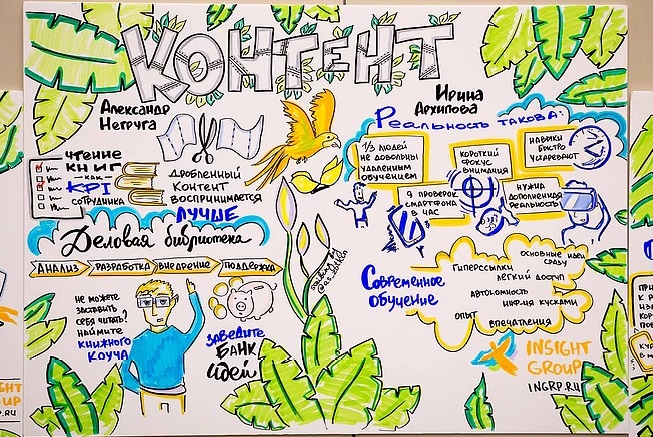 КОНТЕНТ
Александр
Негруга
Ирина
Архипова
Реальность такова:
1/3 людей
не довольны
удаленным
обучением
короткий
фокус
внимания
навыки
быстро
устаревают
9 проверок
смартфона
в час
нужна
дополненная
реальность
чтение
книг
- как -
KPI
сотрудника
дробленный
контент
воспринимается
лучше
Деловая библиотека
Анализ
разработка
внедрение
поддержка
не можете
заставить
себя читать?
наймите
книжного
коуча
заведите
банк
идей
Современное
обучение
гиперссылки
основные идеи
сразу
легкий доступ
автономность
инф-ия кусками
опыт
впечатления
INSIGHT
GROUP
INGRP.RU